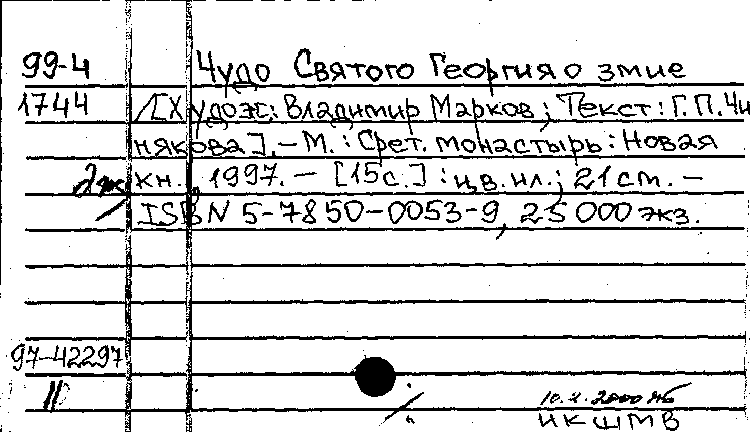 99-4 Чудо Святого Георгия о змие
1744 /[Худож: Владимир Марков; Текст: Г.П. Чи
някова]. – М. : Срет. монастырь : Новая
кн., 1997. – [15с.] : цв. ил.; 21 см. –
ISBN 5-7850-0053-9, 25 000 экз.
97-42297
10.x.2000
ИКШМВ